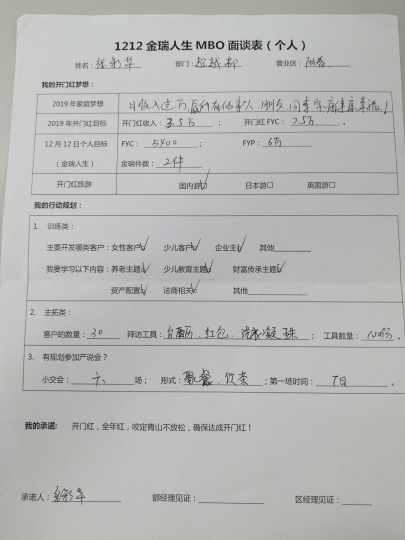 1212金瑞人生MBO面谈表（个人）
姓名：张彩华 部门：超越部 营业区：
我的开门红梦想：
2019年家庭梦想 月收入过万
2019年开门红目标 开门红收入：3.5万； 开门红FYC：2.5万。
12月12日个人目标 FYC：5400； FYP：6万
（金瑞人生） 金瑞件数：2件
开门红旅游 国内游☑ 日本游口 英国游口
我的行动规划：
1. 训练类：
主要开发哪类客户：女性客户√ 少儿客户√ 企业主√ 其他
我要学习以下内容：养老主题√ 少儿教育主题√ 财富传承主题√
资产配置√ 法商相关√ 其他
2. 主拓类：
客户的数量：30 拜访工具：台历、红包、凝珠； 工具数量：100份。
3. 有规划参加产说会？
小交会：六场； 形式：聚餐、饮茶；第一场时间：7日。
我的承诺： 开门红，全年红，咬定青山不放松，确保达成开门红！
承诺人：张彩华 部经理见证： 区经理见证：